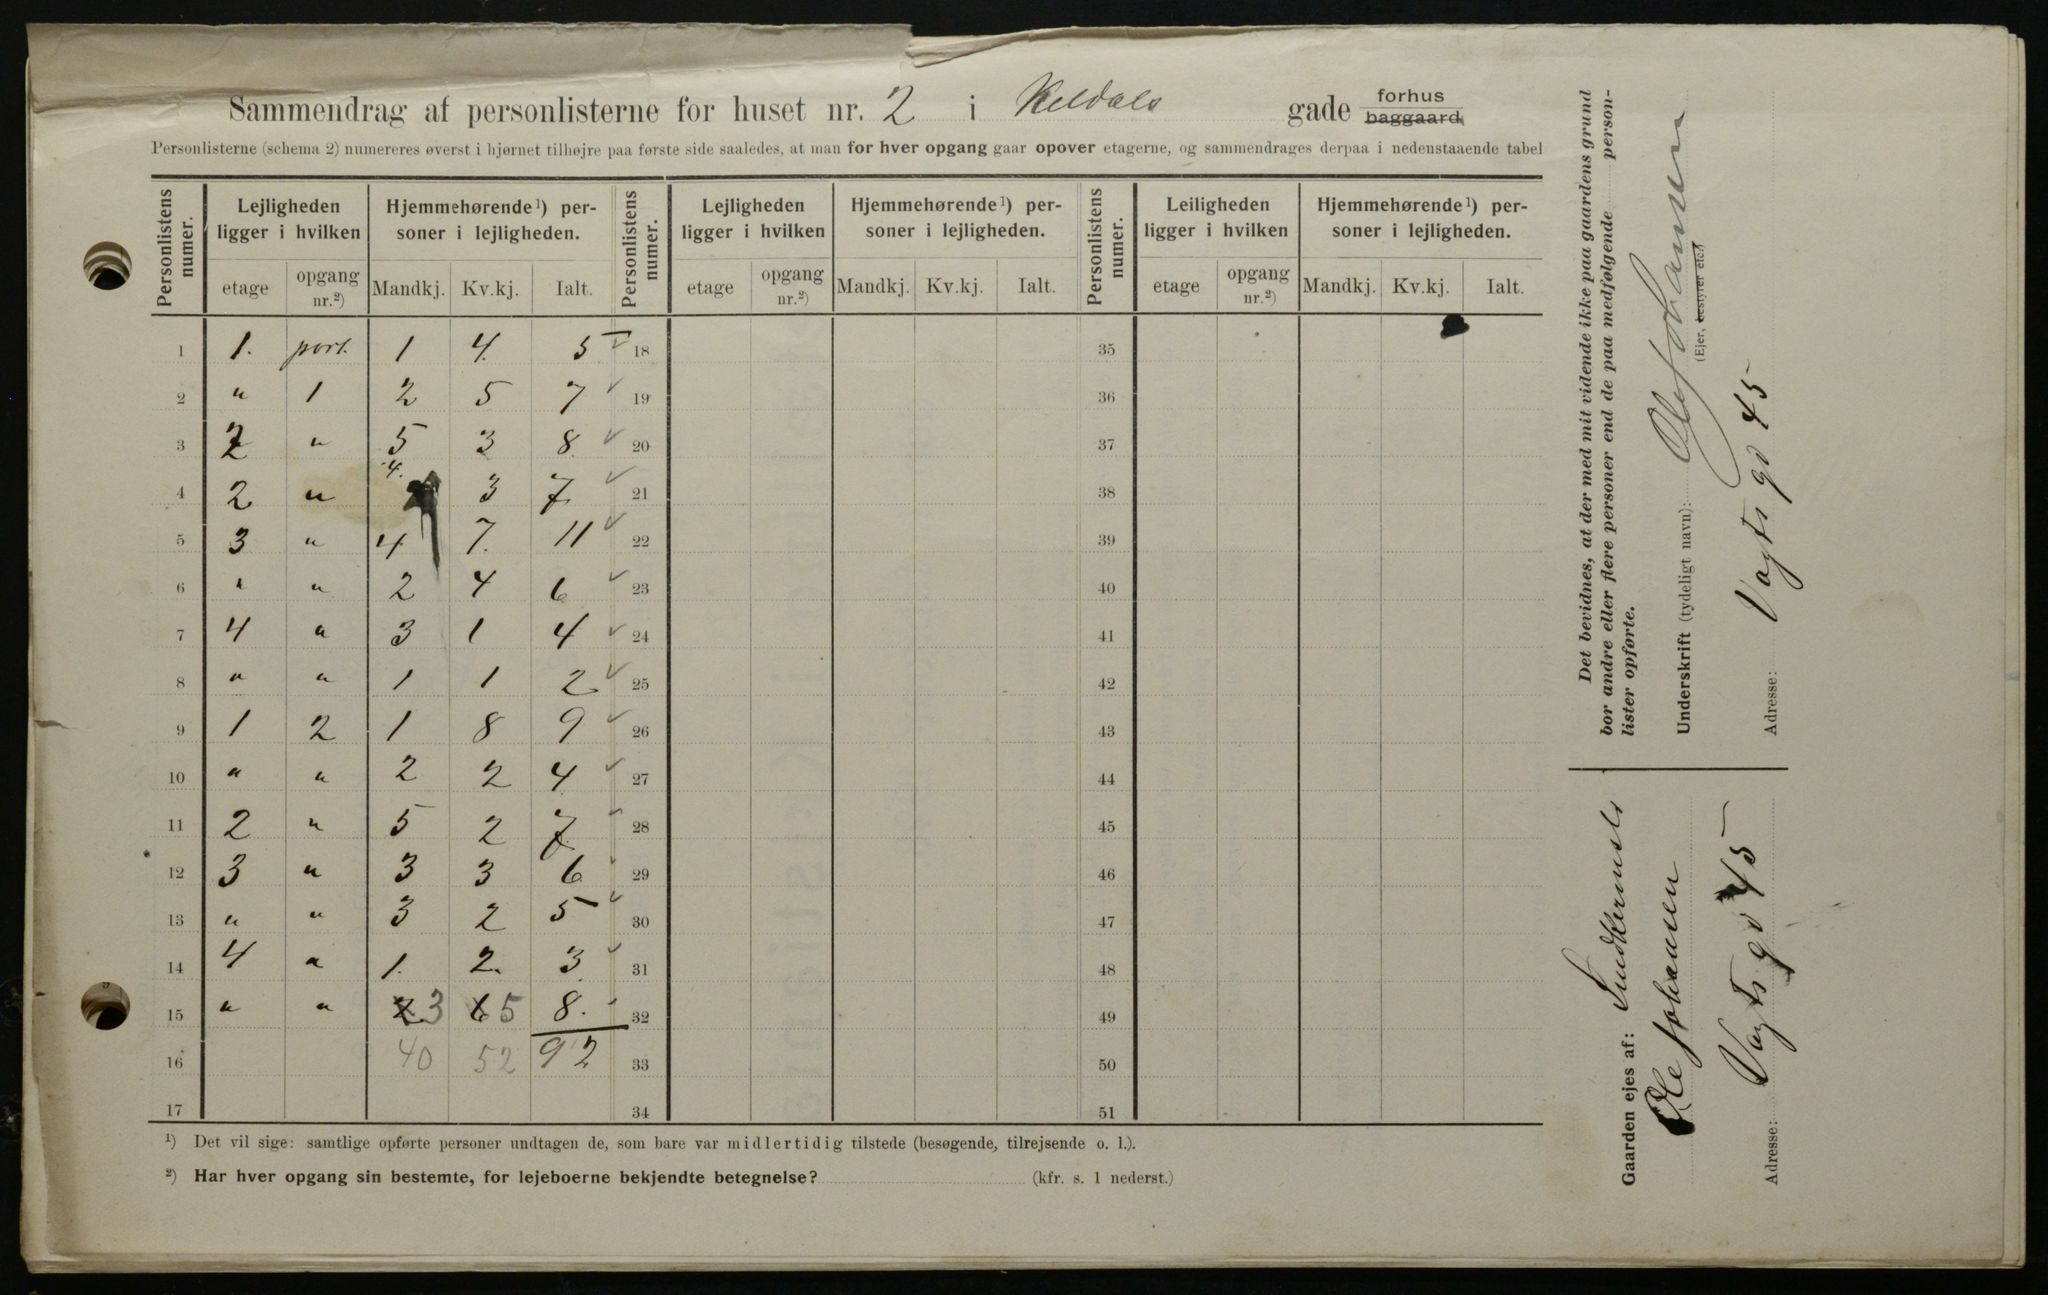 Sammendrag af personlisterne for huset nr. 2 i Keldals gade forhus baggaard
Personlisterne (schema 2) numereres øverst i hjørnet tilhøjre paa første side saaledes, at man for hver opgang gaar opover etagerne, og sammendrages derpaa i nedenstaaende tabel
Personlistens numer. Lejligheden ligger i hvilken Hjemmehørende¹) personer i lejligheden. Personlistens numer. Lejligheden ligger i hvilken Hjemmehørende¹) personer i lejligheden. Personlistens numer. Leiligheden ligger i hvilken Hjemmehørende¹) personer i lejligheden.
etage opgang nr.²) Mandkj. Kv.kj. Ialt. etage opgang nr.²) Mandkj. Kv.kj. Ialt. etage opgang nr.²) Mandkj. Kv.kj. Ialt.
1 1. port. 1 4. 5 ✓ 18 35
2 " 1 2 5 7 ✓ 19 36
3 2 " 5 3 8 ✓ 20 37
4 2 " 4. 3 7 ✓ 21 38
5 3 " 4 7. 11 ✓ 22 39
6 " " 2 4 6 ✓ 23 40
7 4 " 3 1 4 ✓ 24 41
8 " " 1 1 2 ✓ 25 42
9 1 2 1 8 9 ✓ 26 43
10 " " 2 2 4 ✓ 27 44
11 2 " 5 2 7 ✓ 28 45
12 3 " 3 3 6 ✓ 29 46
13 " " 3 2 5 ✓ 30 47
14 4 " 1. 2. 3. ✓ 31 48
15 " " 2 3 6 5 8. ✓ 32 49
16 40 52 92 33 50
17 34 51
¹) Det vil sige: samtlige opførte personer undtagen de, som bare var midlertidig tilstede (besøgende, tilrejsende o. l.).
²) Har hver opgang sin bestemte, for lejeboerne bekjendte betegnelse? (kfr. s. 1 nederst.)
Det bevidnes, at der med mit vidende ikke paa gaardens grund
bor andre eller flere personer end de paa medfølgende person-
lister opførte.
Underskrift (tydeligt navn): Ole Johansen
(Ejer, bestyrer etc.)
Adresse: Vogts gd 45
Gaarden ejes af:
Ole Johansen
Adresse: Vogts gd 45